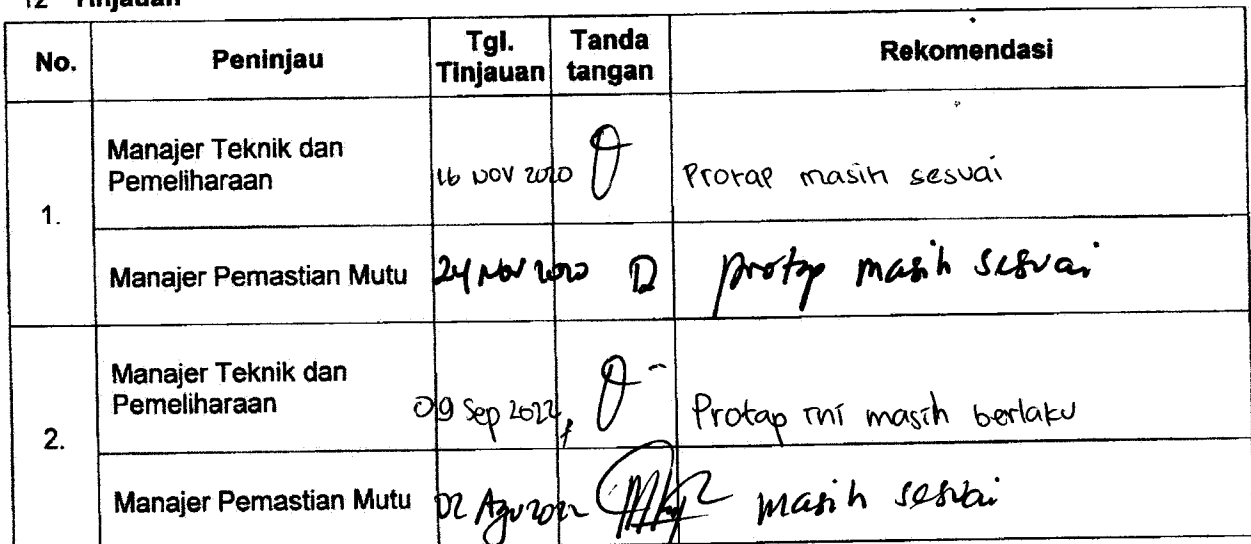 12 Tinjauan
No. Peninjau Tgl. Tinjauan Tanda tangan Rekomendasi
1.
Manajer Teknik dan
Pemeliharaan 16 NOV 2020 Protap masih sesuai
Manajer Pemastian Mutu 24 Nov 2020 protap masih sesuai
2.
Manajer Teknik dan
Pemeliharaan 09 Sep 2022 Protap ini masih berlaku
Manajer Pemastian Mutu 02 Agu 2022 masih sesuai